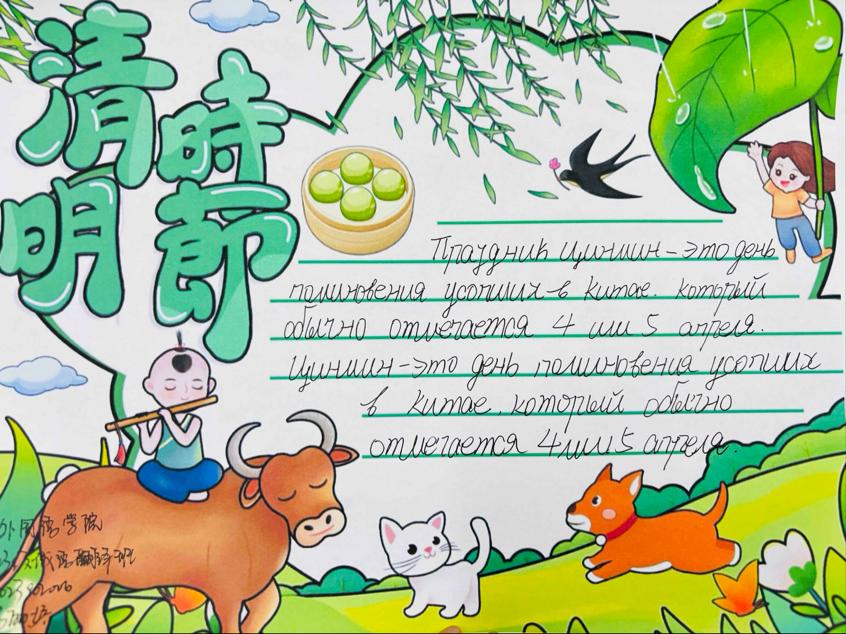 清明
時節
Праздник Цинмин - это день
поминовения усопших в Китае. который
обычно отмечается 4 или 5 апреля.
Цинмин - это день поминовения усопших
в Китае. который обычно
отмечается 4 или 5 апреля.
外国语学院
俄语翻译班